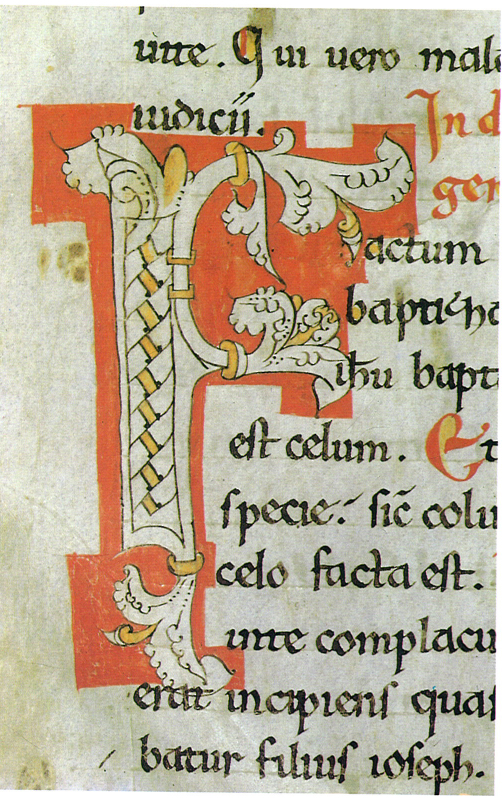 uite. Qui uero mal
iudicii. In d
ger
Factum
ihu bapt
est celum. Et
specie. sic̄ colu
celo facta est.
inte complacu
erat incipiens quas
batur filius ioseph.